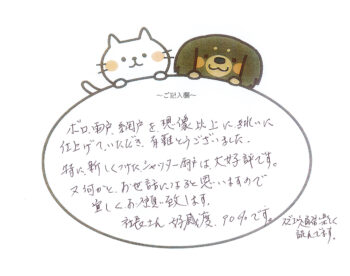 ～ご記入欄～
ボロ雨戸、網戸を想像以上にきれいに
仕上げていただき、有難とうございました。
特に、新しくつけたシャッター雨戸は大好評です。
又何かと、お世話になると思いますので
宜しくお願い致します。
社長さん 好感度、90%です。
楽しく
読んでます。